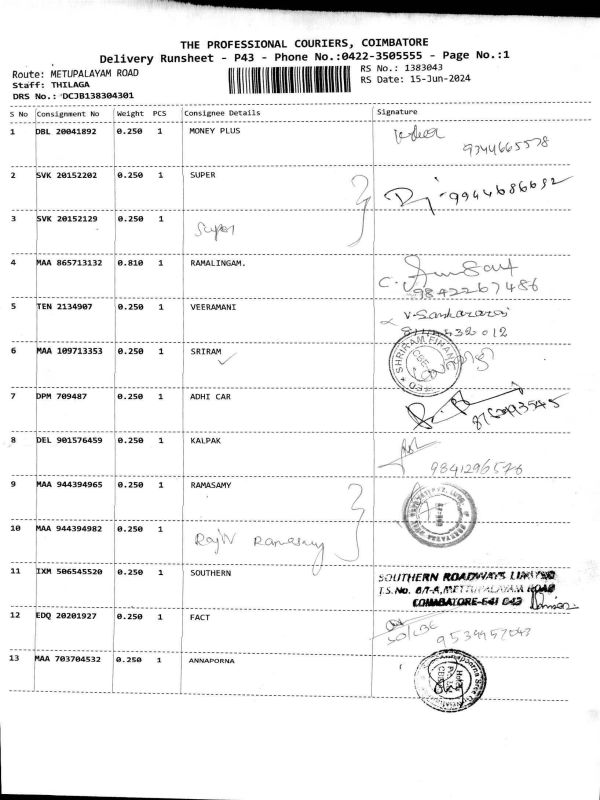 THE PROFESSIONAL COURIERS, COIMBATORE
Delivery Runsheet - P43 - Phone No.:0422-3505555 - Page No.:1
Route: METUPALAYAM ROAD RS No.: 1383043
Staff: THILAGA RS Date: 15-Jun-2024
DRS No.: DCJB138304301
S No Consignment No Weight PCS Consignee Details Signature
1 DBL 20041892 0.250 1 MONEY PLUS
9344665578
2 SVK 20152202 0.250 1 SUPER
9944686692
3 SVK 20152129 0.250 1
Super
4 MAA 865713132 0.810 1 RAMALINGAM.
9842267486
5 TEN 2134907 0.250 1 VEERAMANI
6 MAA 109713353 0.250 1 SRIRAM SHRIRAM FINANCE
CBE
7 DPM 709487 0.250 1 ADHI CAR
8 DEL 901576459 0.250 1 KALPAK
9841296576
9 MAA 944394965 0.250 1 RAMASAMY
10 MAA 944394982 0.250 1
Ramasamy
11 IXM 506545520 0.250 1 SOUTHERN SOUTHERN ROADWAYS LIMITED
T.S.No. 8/7-A, METTUPALAYAM ROAD
COIMBATORE-641 043
12 EDQ 20201927 0.250 1 FACT
9539957043
13 MAA 703704532 0.250 1 ANNAPORNA